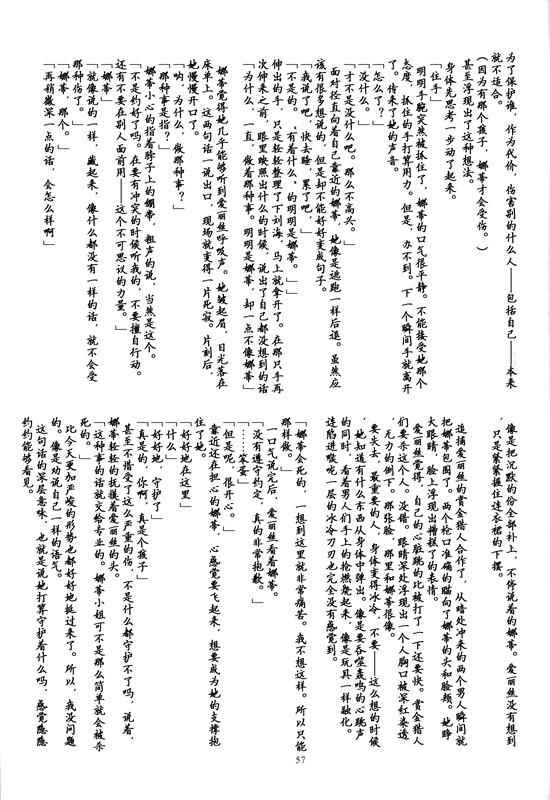 为了保护谁，作为代价，伤害别的什么人——包括自己——本来
就不适合。
（因为有那个孩子，娜蒂才会受伤。）
甚至浮现出了这种想法。
身体先思考一步动了起来。
「住手」
明明手腕突然被抓住了，娜蒂的口气很平静。不能接受她那个
态度，抓住的手打算用力。但是，办不到。下一个瞬间手就离开
了。传来了她的声音。
「怎么了？」
「没什么。」
「才不是没什么吧。那么不高兴。」
面对径直向着自己靠近的娜蒂，她像是逃跑一样后退。虽然应
该有很多想说的，但是却不能好好变成句子。
「我说了吧，快去睡，累了吧」
「不是的。」有着什么，的明明是娜蒂。」
伸出的手，只是轻轻整理了下刘海，马上就拿开了。在那只手再
次伸来之前，眼里映照出什么的时候，说出了自己都没想到的话
「为什么，一直，做着那种事。明明是娜蒂，却一点不像娜蒂」
娜蒂觉得她几乎能够听到爱丽丝呼吸声。她皱起眉，目光落在
床单上。这两句话一说出口，现场就变得一片死寂。片刻后，
她慢慢开口了。
「呐，为什么，做那种事？」
「那种事是指？」
娜蒂小心的指着脖子上的绷带，粗声的说，当然是这个。
「不是约好了吗。在要有冲突的时候听我的，不要擅自行动。
还有不要在别人面前用——这个不可思议的力量。」
「娜蒂」
「就像说的一样，藏起来，像什么都没有一样的话，就不会受
那种伤了。」
「娜蒂，那个。」
「再稍微深一点的话，会怎么样啊」
像是把沉默的份全部补上，不停说着的娜蒂。爱丽丝没有想到
，只是紧紧握住连衣裙的下摆。
追捕爱丽丝的赏金猎人合作了，从暗处冲来的两个男人瞬间就
把娜蒂围了。两个枪口准确的瞄向了娜蒂的头和脸颊。她睁
大眼睛，脸上浮现出糟糕了的表情。
爱丽丝觉得，自己的心脏跳的比被打了一下还要快。赏金猎人
们要杀这个人。没错。眼睛深处浮现出一个人胸口被深红染透
，无力的倒下。那张脸，那里和娜蒂很像。
要失去，最重要的人，身体变得冰冷，不要——这么想的时候
，她知道有什么东西从身体中弹出。像是要吞噬轰鸣的心跳声
的同时，看着男人们手上的枪燃烧起来，像是玩具一样融化。
连陷进喉咙一层的冰冷刀刃也完全没有感觉到。
「娜蒂会死的，一想到这里就非常痛苦。我不想这样。所以只能
那样做。」
一口气说完后，爱丽丝看着娜蒂。
「没有遵守约定，真的非常抱歉。」
「……笨蛋」
「但是呢，很开心。」
靠近还在担心的娜蒂，心感觉要飞起来，想要成为她的支撑抱
住了她。
「好好地在这里」
「什么」
「好好地，守护了」
「真是的，你啊，真是个孩子」
甚至不惜受了这么严重的伤，不是什么都守护不了吗，说着，
娜蒂轻轻的抚摸着爱丽丝的头。
「这种事的话就交给专业的。娜蒂小姐可不是那么简单就会被杀
死的。」
比今天更加严峻的形势也都好好地挺过来了。所以，我没问题
的。像是劝说自己一样的语气。
这句话的深层意味，也就是说她打算守护着什么吗，感觉隐隐
约约能够看见。
57